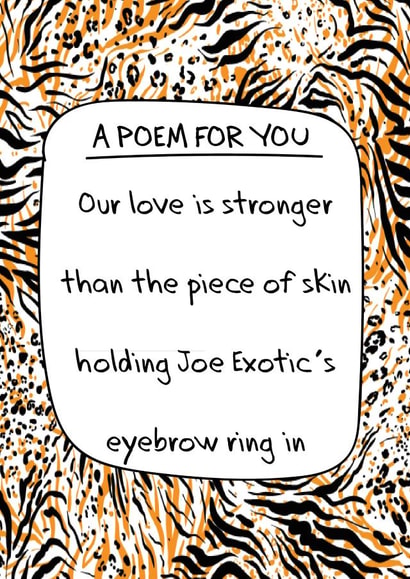 A POEM FOR YOU
Our love is stronger
than the piece of skin
holding Joe Exotic's
eyebrow ring in